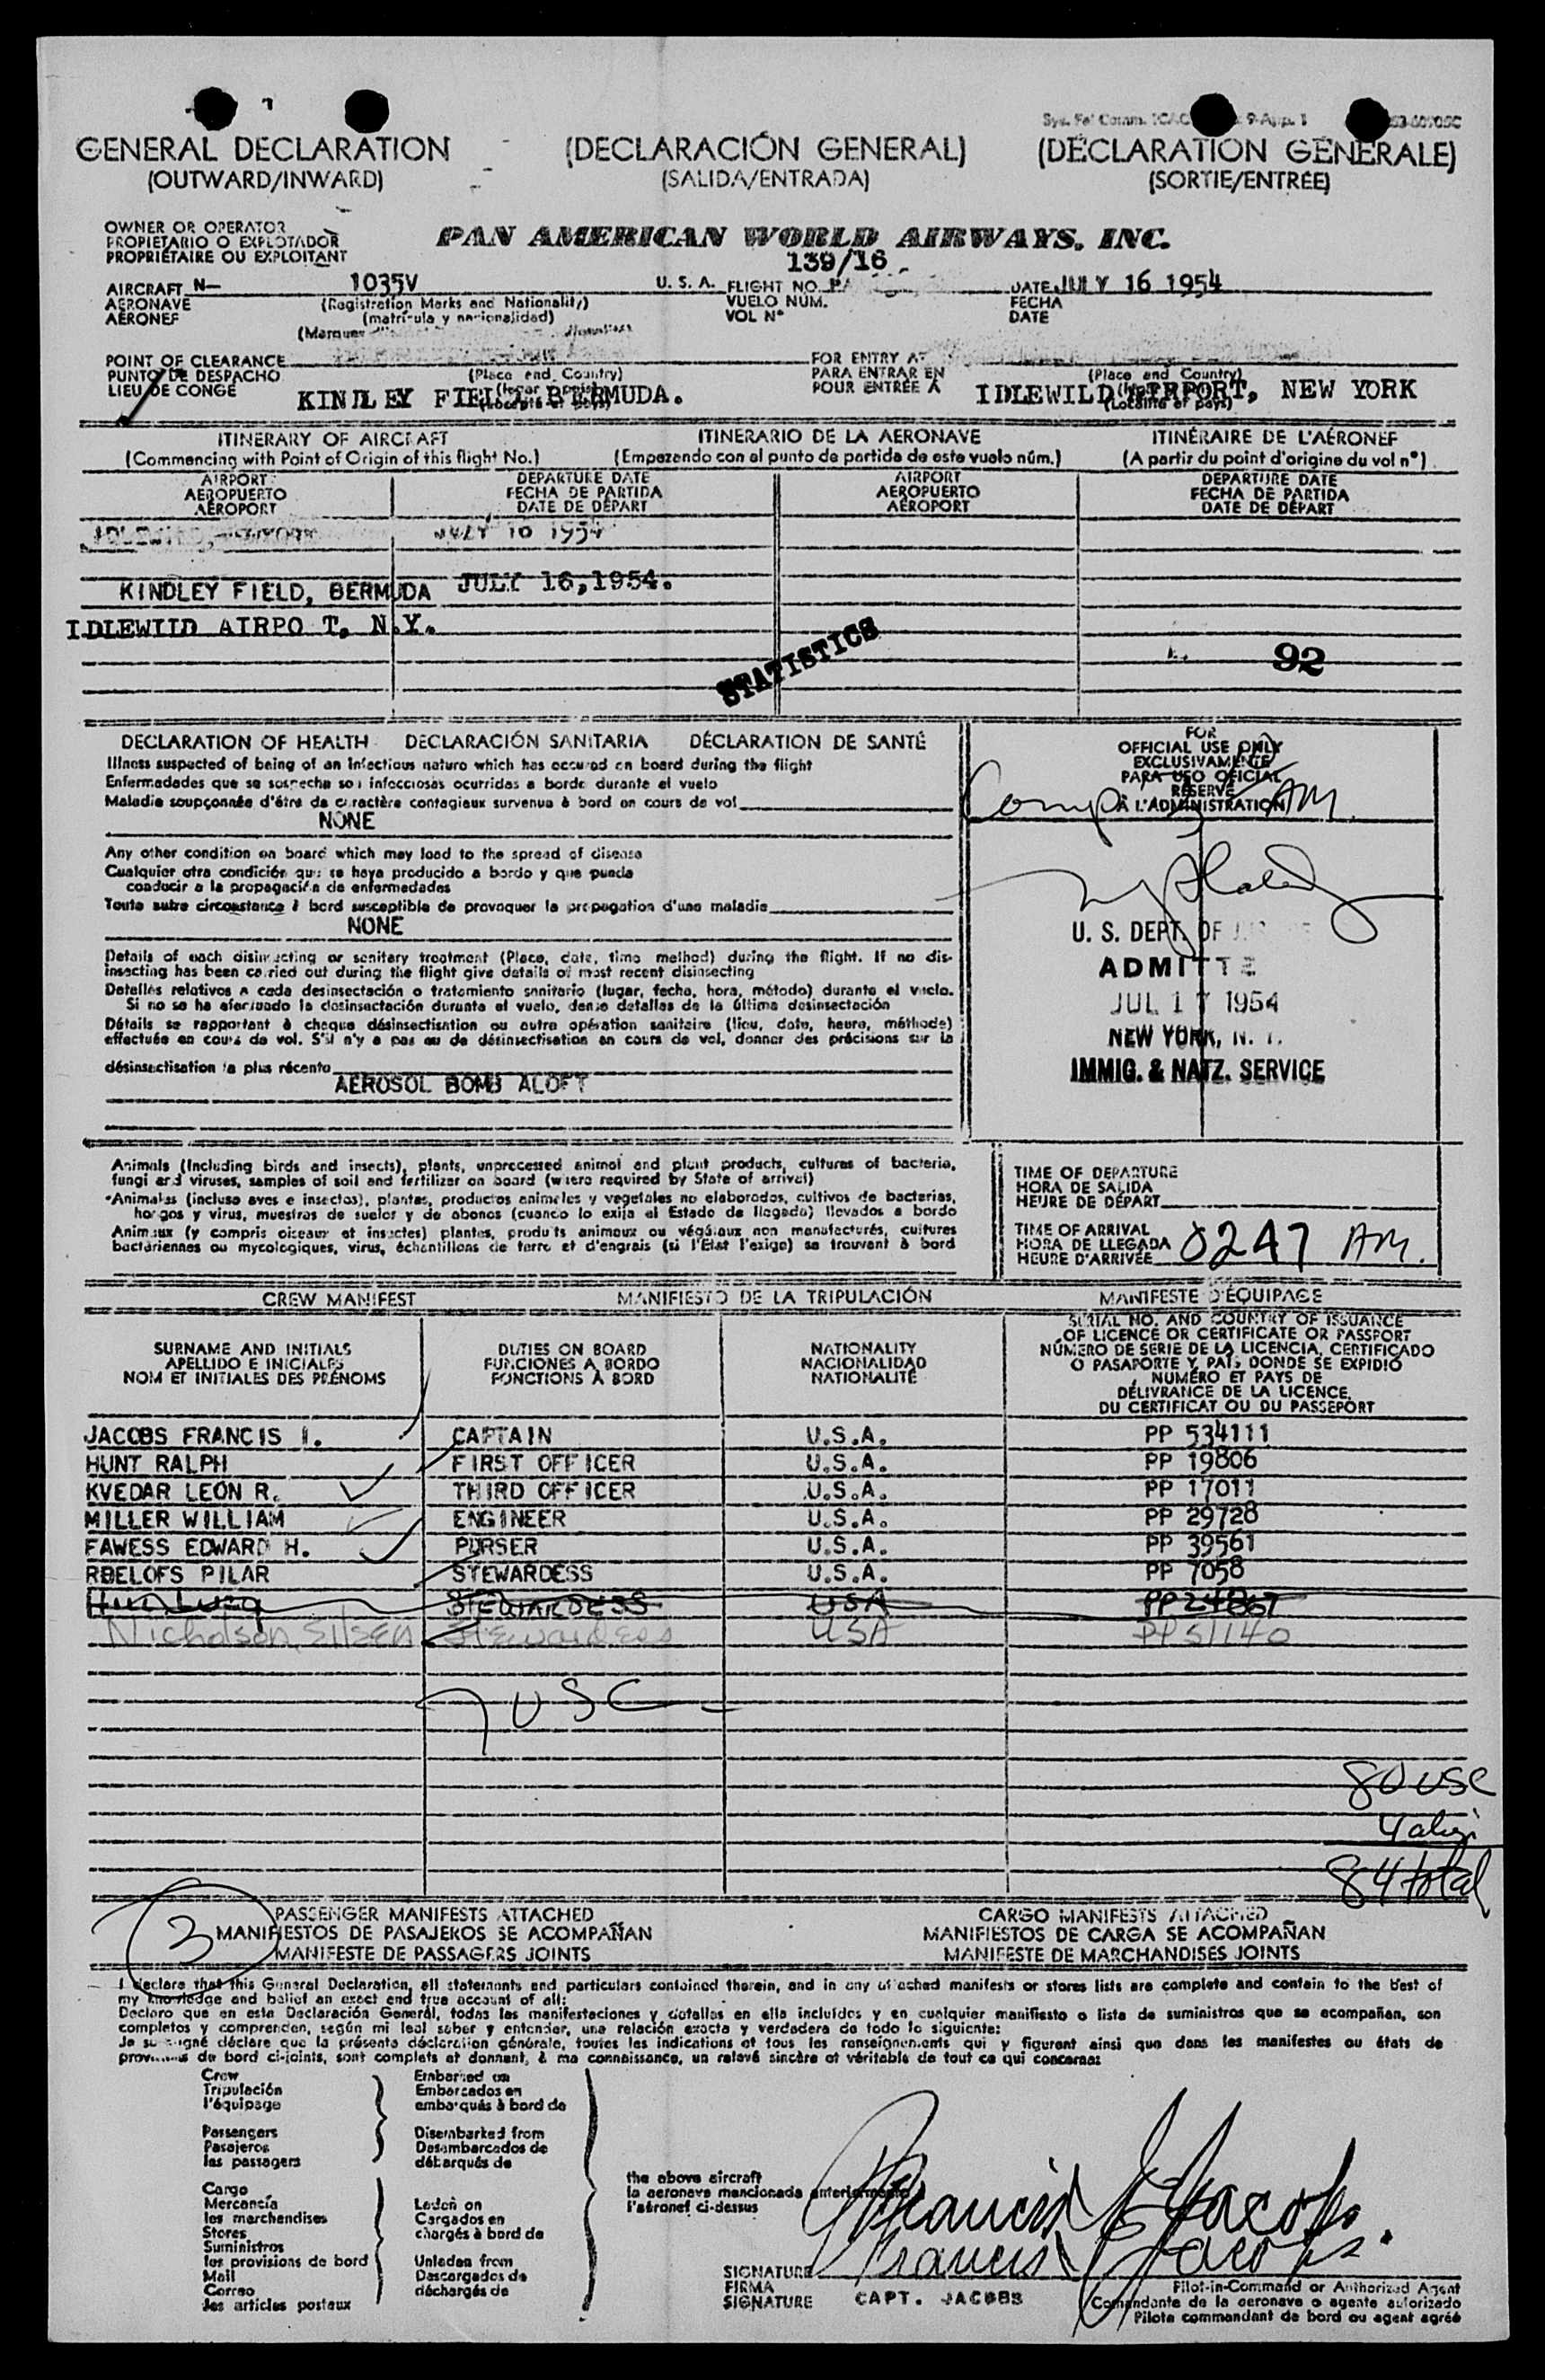 GENERAL DECLARATION (DECLARACIÓN GENERAL) (DÉCLARATION GÉNÉRALE)
(OUTWARD/INWARD) (SALIDA/ENTRADA) (SORTIE/ENTRÉE)
OWNER OR OPERATOR
PROPIETARIO O EXPLOTADOR
PROPRIÉTAIRE OU EXPLOITANT
PAN AMERICAN WORLD AIRWAYS, INC.
139/16
AIRCRAFT N— 1035V U. S. A. FLIGHT NO. PA DATE JULY 16 1954
AERONAVE (Registration Marks and Nationality) VUELO NÚM. FECHA
AÉRONEF (matrícula y nacionalidad) VOL N° DATE
(Marques
POINT OF CLEARANCE FOR ENTRY AT
PUNTO DE DESPACHO (Place and Country) PARA ENTRAR EN (Place and Country)
LIEU DE CONGÉ KINDLEY FIELD, BERMUDA. POUR ENTRÉE À IDLEWILD AIRPORT, NEW YORK
(Localité et pays)
ITINERARY OF AIRCRAFT ITINERARIO DE LA AERONAVE ITINÉRAIRE DE L'AÉRONEF
(Commencing with Point of Origin of this flight No.) (Empezando con el punto de partida de este vuelo núm.) (A partir du point d'origine du vol n°)
AIRPORT DEPARTURE DATE AIRPORT DEPARTURE DATE
AEROPUERTO FECHA DE PARTIDA AEROPUERTO FECHA DE PARTIDA
AÉROPORT DATE DE DÉPART AÉROPORT DATE DE DÉPART
JULY 16 1954
KINDLEY FIELD, BERMUDA JULY 16,1954.
IDLEWILD AIRPO T, N.Y.
STATISTICS
92
DECLARATION OF HEALTH DECLARACIÓN SANITARIA DÉCLARATION DE SANTÉ
Illness suspected of being of an infectious nature which has occured on board during the flight
Enfermedades que se sospecha son infecciosas ocurridas a bordo durante el vuelo
Maladie soupçonnée d'être de caractère contagieux survenue à bord en cours de vol
NONE
Any other condition on board which may lead to the spread of disease
Cualquier otra condición que se haya producido a bordo y que pueda
conducir a la propagación de enfermedades
Toute autre circonstance à bord susceptible de provoquer la propagation d'une maladie
NONE
Details of each disinsecting or sanitary treatment (Place, date, time method) during the flight. If no dis-
insecting has been carried out during the flight give details of most recent disinsecting
Detalles relativos a cada desinsectación o tratamiento sanitario (lugar, fecha, hora, método) durante el vuelo.
Si no se ha efectuado la desinsectación durante el vuelo, dense detalles de la última desinsectación
Détails se rapportant à chaque désinsectisation ou autre opération sanitaire (lieu, date, heure, méthode)
effectuée en cours de vol. S'il n'y a pas eu de désinsectisation en cours de vol, donner des précisions sur la
désinsectisation la plus récente
AEROSOL BOMB ALOFT
FOR
OFFICIAL USE ONLY
EXCLUSIVAMENTE
PARA USO OFICIAL
RÉSERVÉ
À L'ADMINISTRATION
AM
U. S. DEPT. OF
ADMITTE
JUL 17 1954
NEW YORK, N. Y.
IMMIG. & NATZ. SERVICE
Animals (Including birds and insects), plants, unprocessed animal and plant products, cultures of bacteria,
fungi and viruses, samples of soil and fertilizer on board (where required by State of arrival)
Animales (incluso aves e insectos), plantas, productos animales y vegetales no elaborados, cultivos de bacterias,
hongos y virus, muestras de suelos y de abonos (cuando lo exija el Estado de llegada) llevados a bordo
Animaux (y compris oiseaux et insectes) plantes, produits animaux ou végétaux non manufacturés, cultures
bactériennes ou mycologiques, virus, échantillons de terre et d'engrais (si l'État l'exige) se trouvant à bord
TIME OF DEPARTURE
HORA DE SALIDA
HEURE DE DÉPART
TIME OF ARRIVAL
HORA DE LLEGADA 0247 AM.
HEURE D'ARRIVÉE
CREW MANIFEST MANIFIESTO DE LA TRIPULACIÓN MANIFESTE D'ÉQUIPAGE
SURNAME AND INITIALS
APELLIDO E INICIALES
NOM ET INITIALES DES PRÉNOMS
DUTIES ON BOARD
FUNCIONES A BORDO
FONCTIONS À BORD
NATIONALITY
NACIONALIDAD
NATIONALITÉ
SERIAL NO. AND COUNTRY OF ISSUANCE
OF LICENCE OR CERTIFICATE OR PASSPORT
NÚMERO DE SERIE DE LA LICENCIA, CERTIFICADO
O PASAPORTE Y PAÍS DONDE SE EXPIDIÓ
NUMÉRO ET PAYS DE
DÉLIVRANCE DE LA LICENCE,
DU CERTIFICAT OU DU PASSEPORT
JACOBS FRANCIS I. CAPTAIN U.S.A. PP 534111
HUNT RALPH FIRST OFFICER U.S.A. PP 19806
KVEDAR LEON R. THIRD OFFICER U.S.A. PP 17011
MILLER WILLIAM ENGINEER U.S.A. PP 29728
FAWESS EDWARD H. PURSER U.S.A. PP 39561
ROELOFS PILAR STEWARDESS U.S.A. PP 7058
STEWARDESS USA PP 24867
Nicholson, Eileen Stewardess USA PP 51140
7 USC
80 USC
4 alien
84 total
3
PASSENGER MANIFESTS ATTACHED CARGO MANIFESTS ATTACHED
MANIFIESTOS DE PASAJEROS SE ACOMPAÑAN MANIFIESTOS DE CARGA SE ACOMPAÑAN
MANIFESTE DE PASSAGERS JOINTS MANIFESTE DE MARCHANDISES JOINTS
I declare that this General Declaration, all statements and particulars contained therein, and in any attached manifests or stores lists are complete and contain to the best of
my knowledge and belief an exact and true account of all:
Declaro que en esta Declaración General, todas las manifestaciones y detalles en ella incluídos y en cualquier manifiesto o lista de suministros que se acompañan, son
completos y comprenden, según mi leal saber y entender, una relación exacta y verdadera de todo lo siguiente:
Je soussigné déclare que la présente déclaration générale, toutes les indications et tous les renseignements qui y figurent ainsi que dans les manifestes ou états de
provisions de bord ci-joints, sont complets et donnent, à ma connaissance, un relevé sincère et véritable de tout ce qui concerne:
Crew Embarked on
Tripulación Embarcados en
l'équipage embarqués à bord de
Passengers Disembarked from
Pasajeros Desembarcados de
les passagers débarqués de
Cargo
Mercancía Laden on
les marchandises Cargados en
Stores chargés à bord de
Suministros
les provisions de bord Unladen from
Mail Descargados de
Correo déchargés de
les articles postaux
the above aircraft
la aeronave mencionada anteriormente
l'aéronef ci-dessus
Francis I Jacobs.
Francis I Jacobs
SIGNATURE
FIRMA
SIGNATURE
CAPT. JACOBS
Pilot-in-Command or Authorized Agent
Comandante de la aeronave o agente autorizado
Pilote commandant de bord ou agent agréé